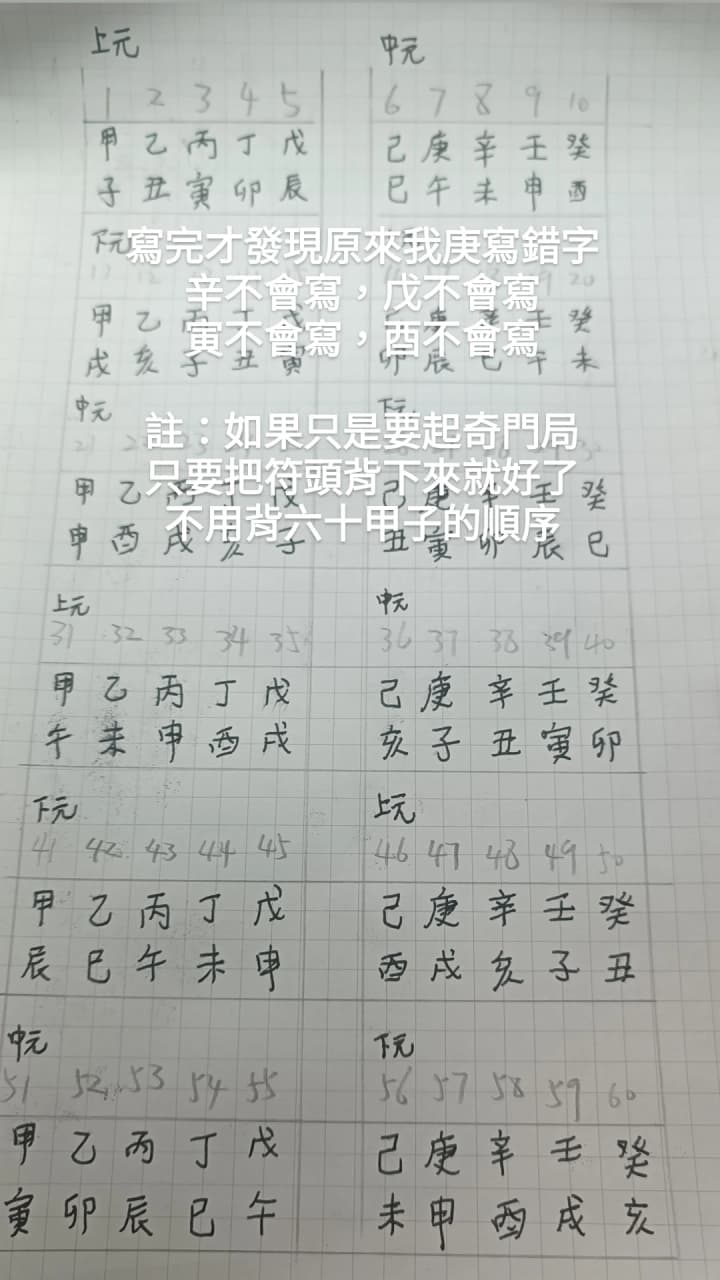 上元 中元
1 2 3 4 5 6 7 8 9 10
甲 乙 丙 丁 戊 己 庚 辛 壬 癸
子 丑 寅 卯 辰 巳 午 未 申 酉
下元
寫完才發現原來我庚寫錯字
辛不會寫,戊不會寫
寅不會寫,酉不會寫
20
甲 乙 丙 丁 戊 庚 辛 壬 癸
戌 亥 子 丑 寅 卯 辰 巳 午 未
中元 下元
註:如果只是要起奇門局
只要把符頭背下來就好了
不用背六十甲子的順序
21
甲 乙 丙 戊 己 庚 辛 壬 癸
申 酉 戌 亥 子 丑 寅 卯 辰 巳
上元 中元
31 32 33 34 35 36 37 38 39 40
甲 乙 丙 丁 戊 己 庚 辛 壬 癸
午 未 申 酉 戌 亥 子 丑 寅 卯
下元 上元
41 42 43 44 45 46 47 48 49 50
甲 乙 丙 丁 戊 己 庚 辛 壬 癸
辰 巳 午 未 申 酉 戌 亥 子 丑
中元 下元
51 52 53 54 55 56 57 58 59 60
甲 乙 丙 丁 戊 己 庚 辛 壬 癸
寅 卯 辰 巳 午 未 申 酉 戌 亥